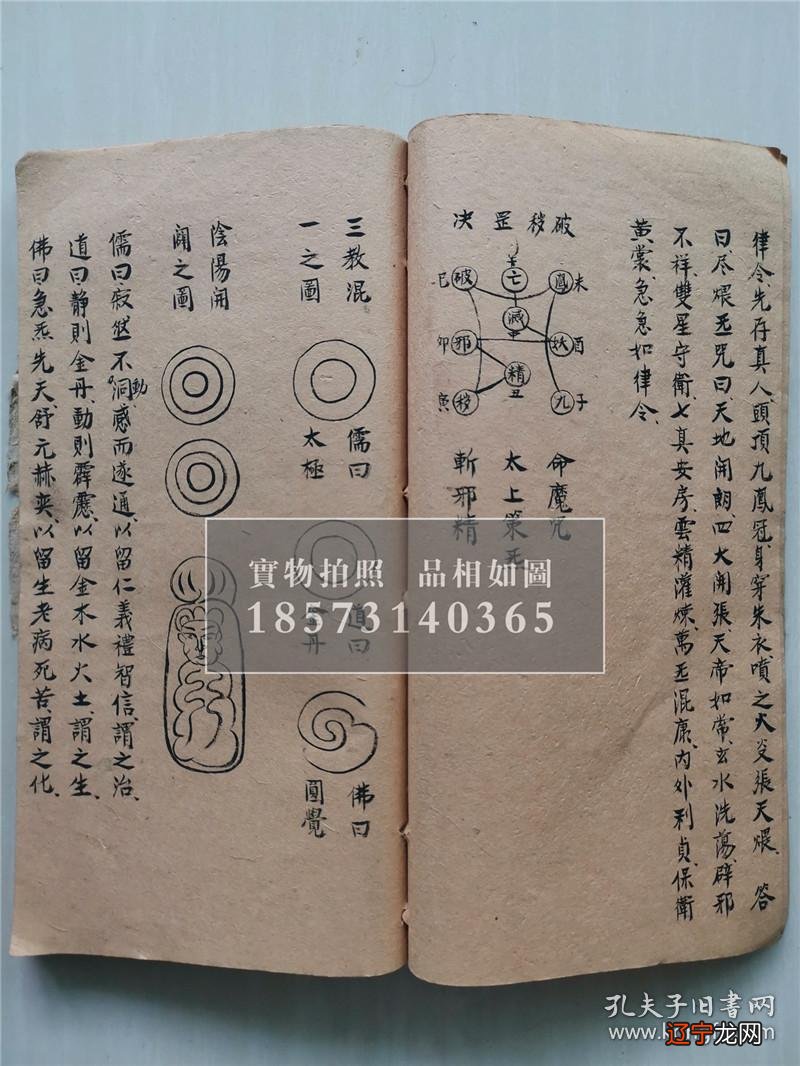 律令先存真人頭頂九鳳冠身穿朱衣噴之大炎張天煨、答
曰尽煨歪咒曰天地開朗四大開張天帝如常玄水洗蕩辟邪
不祥雙星守衛七真安房雲精灌煉萬歪混康内外利貞保衛
黄裳急急如律令、
破秽罡决
未 鳳
亡
破 巳
滅
酉 妖
邪 卯
精 丑
子 九
秽 寅
命魔咒
太上策歪
斬邪精
三教混
一之圖
儒曰
太極
道曰
丹
佛曰
圓覺
陰陽開
闢之圖
儒曰寂然不動洞感而遂通以留仁義禮智信謂之治、
道曰静則金丹動則霹靂以留金木水火土謂之生、
佛曰急炁先天舒元赫奕以留生老病死苦謂之化、
實物拍照 品相如圖
18573140365
孔夫子旧書网
辽宁龙网